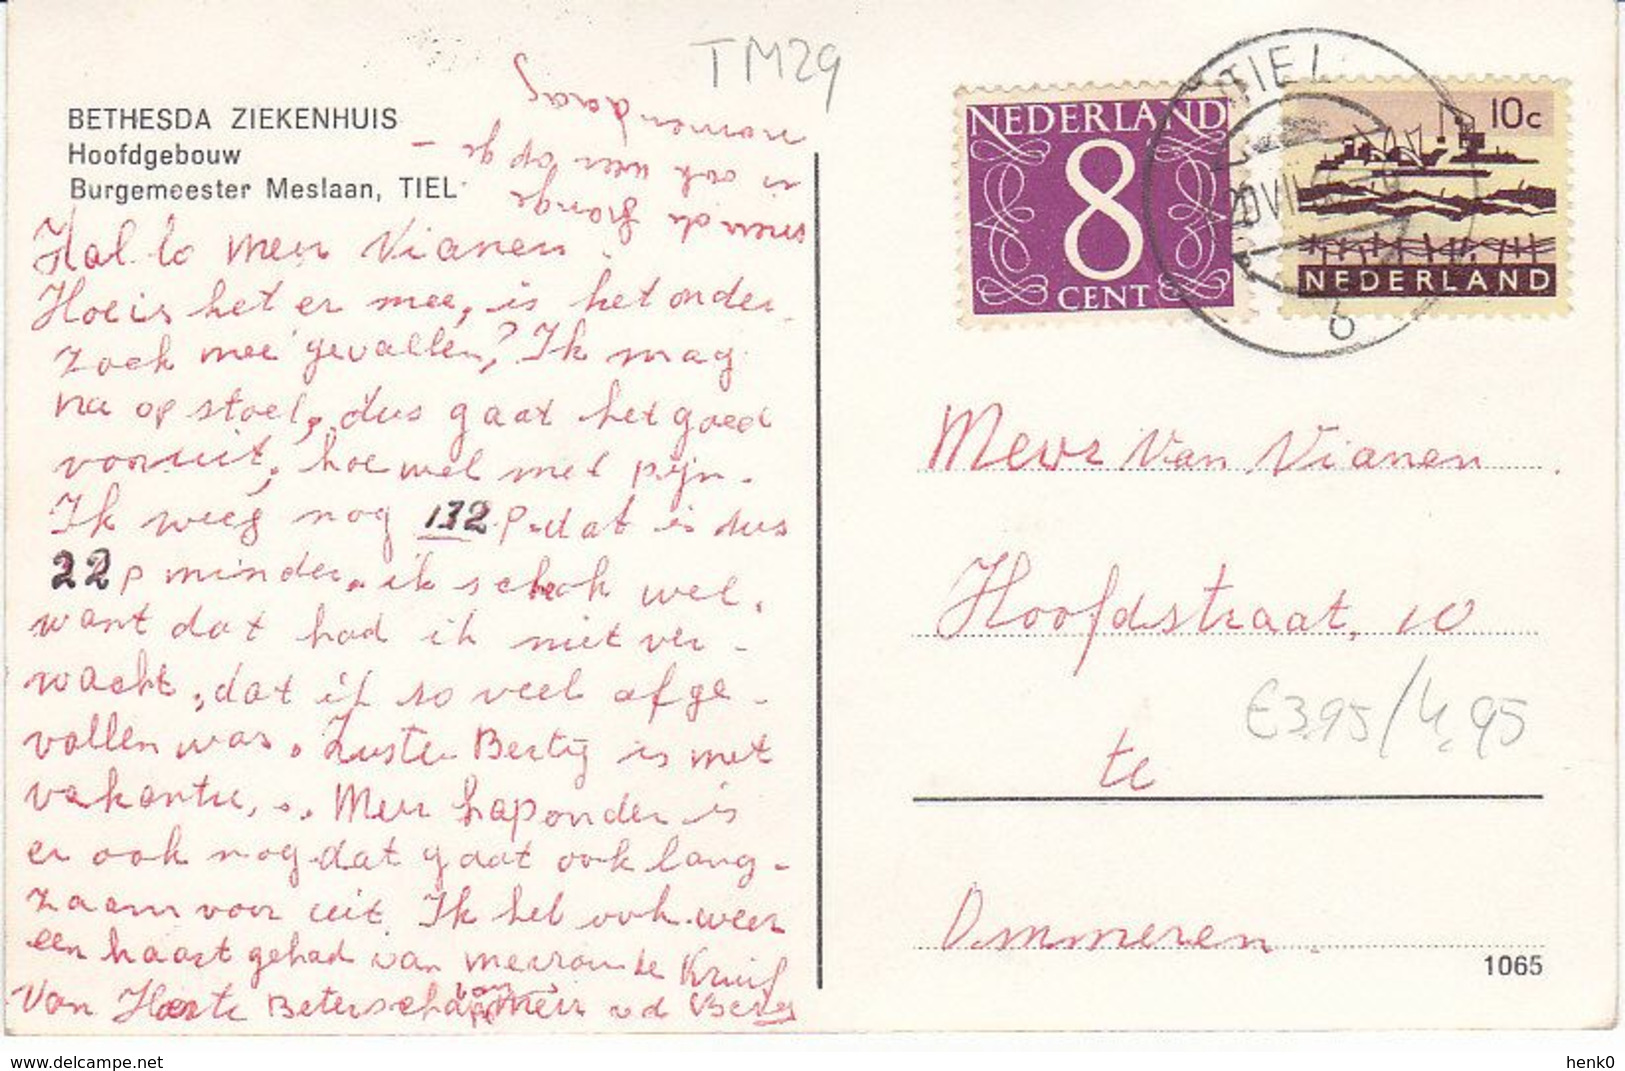 TM29
BETHESDA ZIEKENHUIS
Hoofdgebouw
Burgemeester Meslaan, TIEL
Hal lo Mevr Vianen.
Hoe is het er mee, is het onder-
zoek mee gevallen? Ik mag
nu op stoel, dus gaat het goed
vooruit, hoe wel met pijn.
Ik weeg nog 132 p. dat is dus
22 p minder. ik schrok wel,
want dat had ik niet ver-
wacht, dat ik so veel afge-
vallen was. Zuster Bertij is met
vakantie,.. Mevr haponder is
er ook nog dat gaat ook lang-
zaam voor uit. Ik heb ook weer
een kaart gehad van mevrou de Kruif
Van Harte Beterschap van Mevr v d Berg
is ook weer op ge-
nomen daag
NEDERLAND
8
CENT
TIEL
20 VII
b
10c
NEDERLAND
Mevr Van Vianen.
Hoofdstraat, 10
€3.95/4.95
te
Ommeren.
1065
www.delcampe.net
henk0